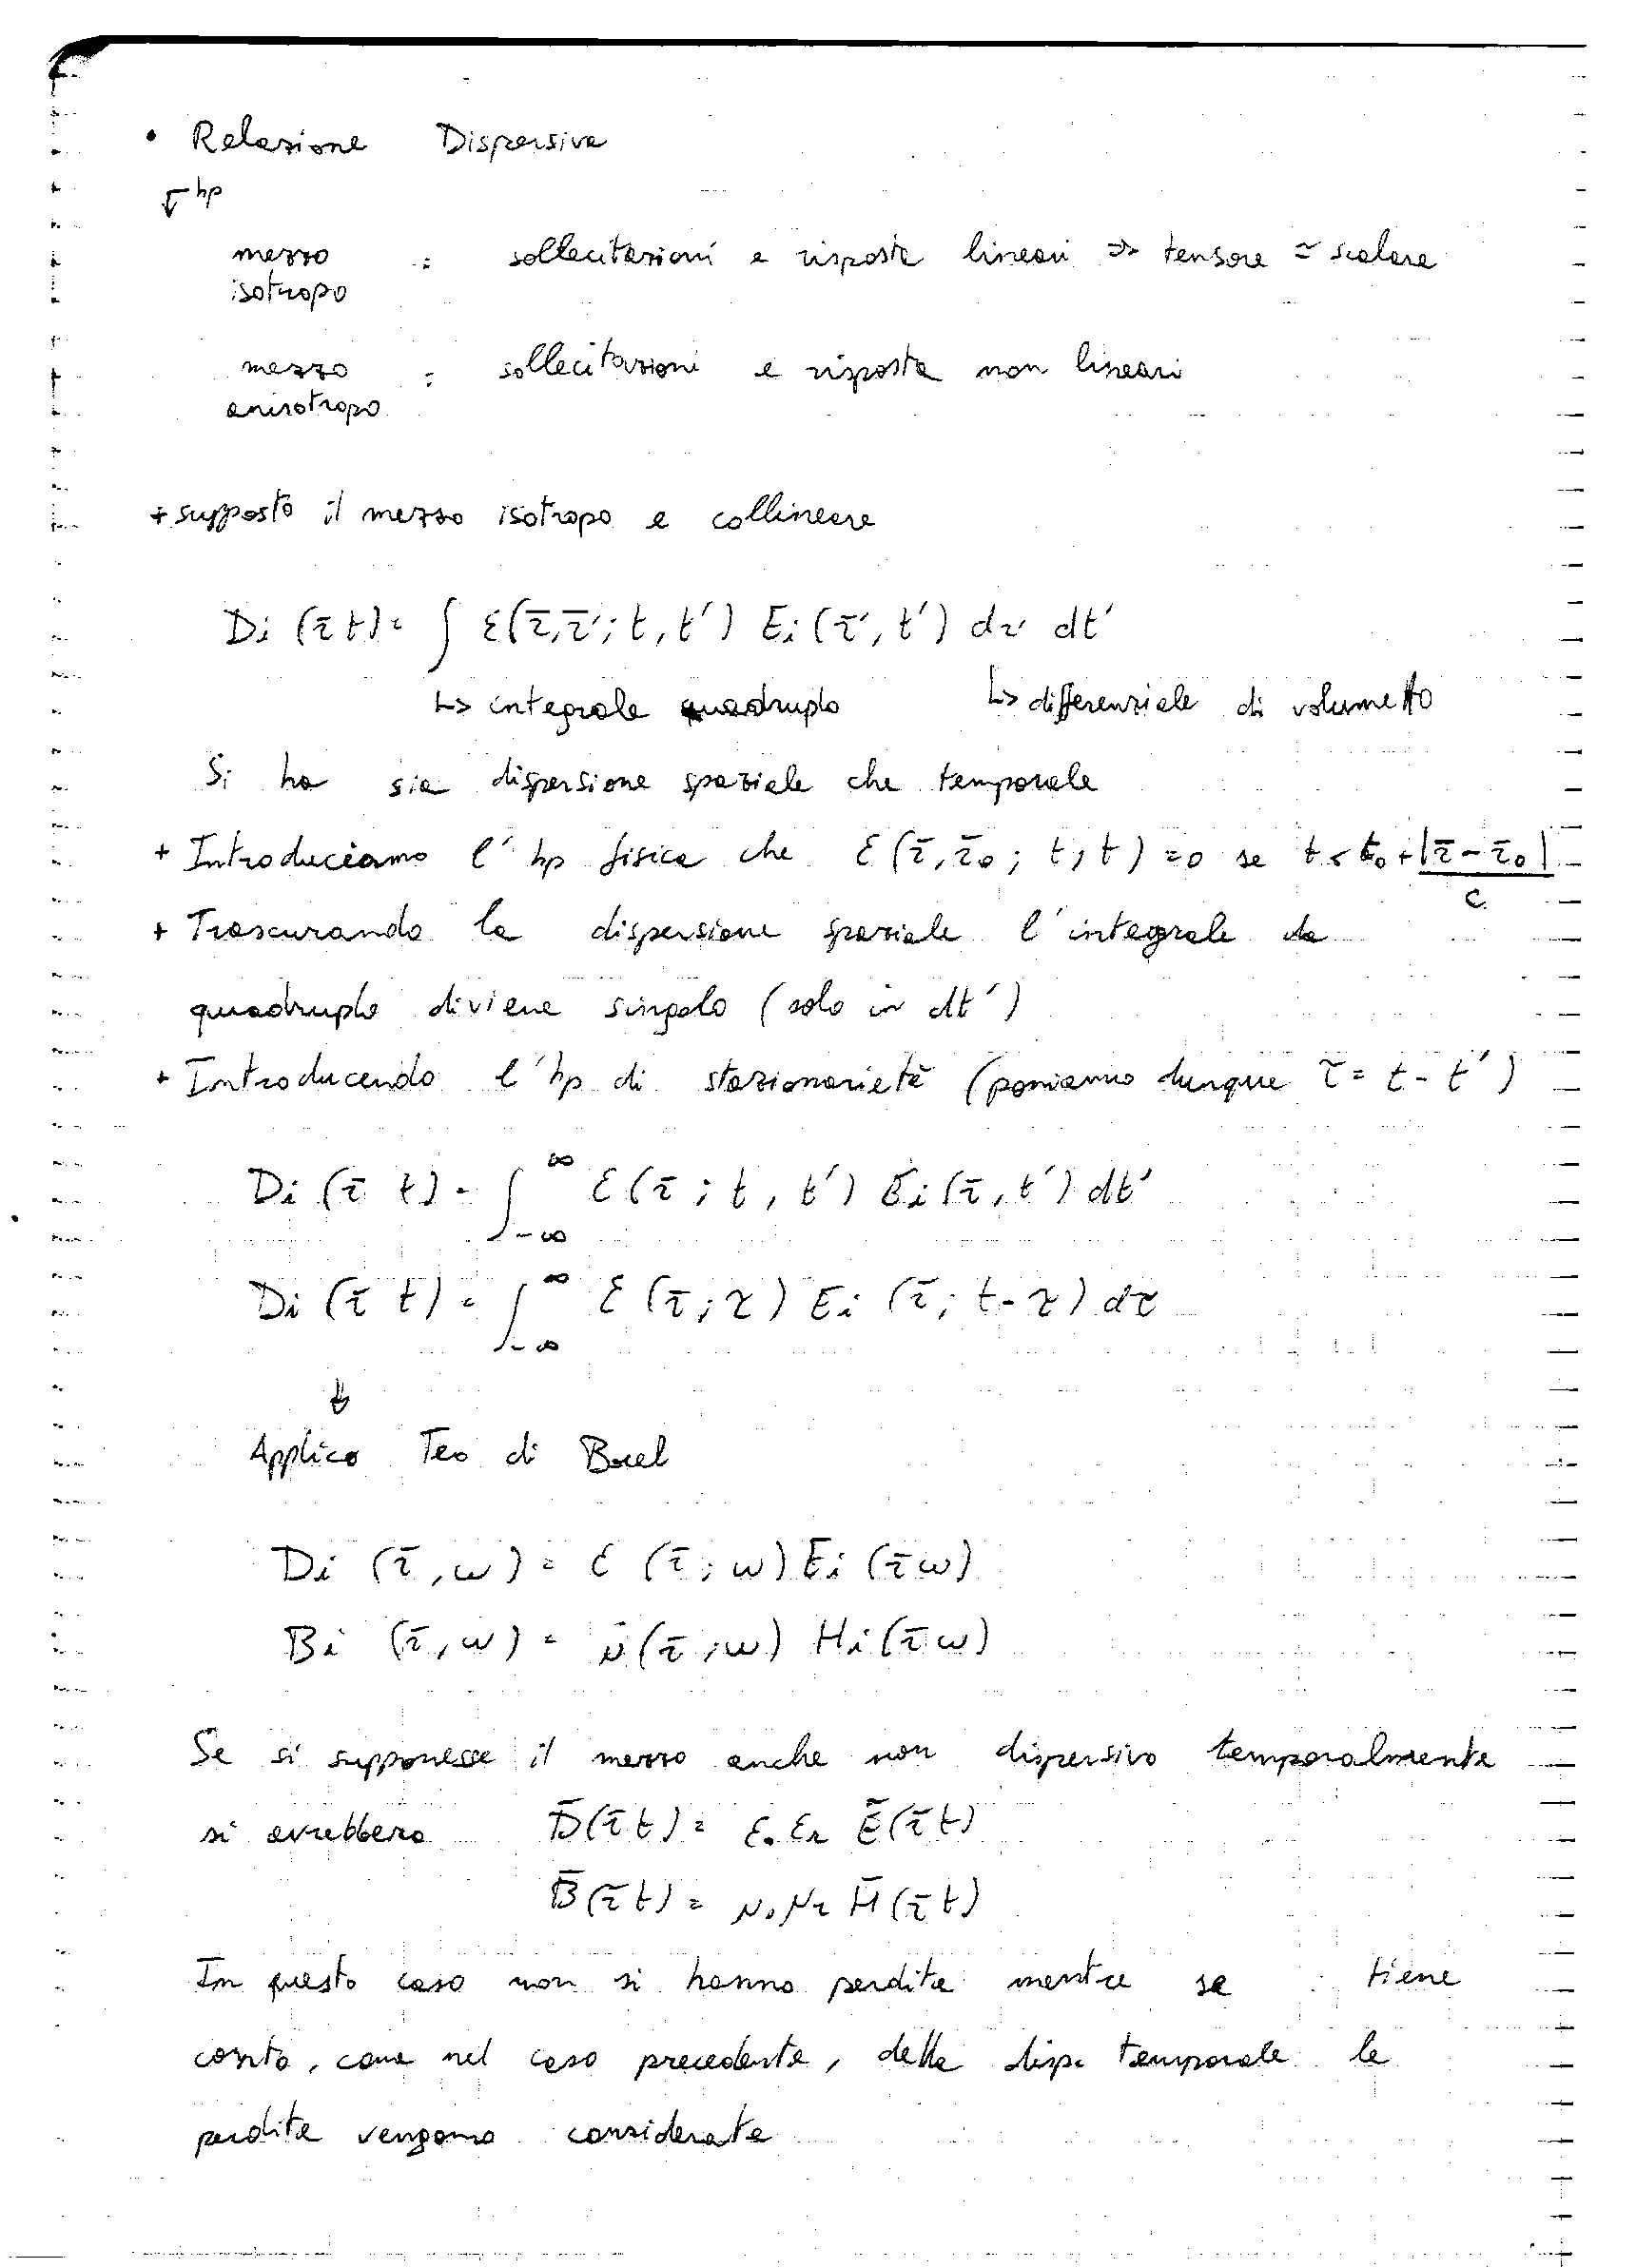 • Relazione Dispersiva
↓ hp
mezzo isotropo : sollecitazioni e risposta lineari => tensore ≃ scalare
mezzo anisotropo : sollecitazioni e risposta non lineari
+ supposto il mezzo isotropo e collineare
Di (r̄ t) = ∫ ε(r̄, r̄'; t, t') Ei (r̄', t') dr' dt'
↳ integrale quadruplo ↳ differenziale di volumetto
Si ha sia dispersione spaziale che temporale
+ Introduciamo l'hp fisica che ε(r̄, r̄o; t, t) = 0 se t < to + |r̄ - r̄o| / c
+ Trascurando la dispersione spaziale l'integrale da
quadruplo diviene singolo (solo in dt')
+ Introducendo l'hp di stazionarietà (poniamo dunque τ = t - t')
Di (r̄ t) = ∫_{-∞}^{∞} ε(r̄; t, t') Ei (r̄, t') dt'
Di (r̄ t) = ∫_{-∞}^{∞} ε(r̄; τ) Ei (r̄; t - τ) dτ
⇓
Applico Teo di Borel
Di (r̄, ω) = ε (r̄; ω) Ei (r̄ ω)
Bi (r̄, ω) = μ (r̄; ω) Hi (r̄ ω)
Se si supponesse il mezzo anche non dispersivo temporalmente
si avrebbero D̄(r̄ t) = ε₀ εr Ē(r̄ t)
B̄(r̄ t) = μ₀ μr H̄(r̄ t)
In questo caso non si hanno perdite mentre se tiene
conto, come nel caso precedente, della disp. temporale le
perdite vengono considerate